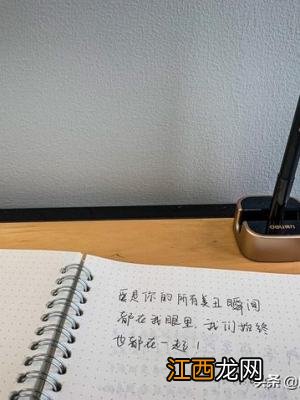 deli
要是你的所有美丑瞬间
都在我眼里，我们始终
也都在一起！
江西龙网